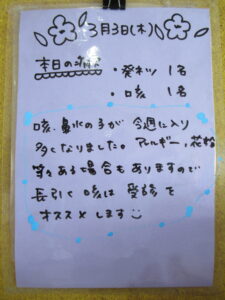 3月3日(木)
本日の病欠
・発ネツ 1名
・咳 1名
咳、鼻水の子が今週に入り
多くなりました。アレルギー、花粉
等々ある場合もありますので
長引く咳は受診を
オススメします